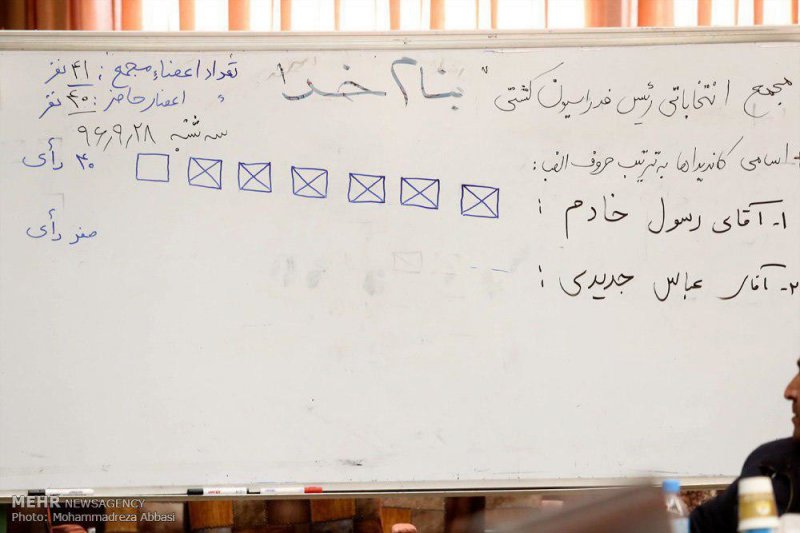 بنام خدا
مجمع انتخاباتی رئیس فدراسیون کشتی
تعداد اعضاء مجمع : ۴۱ نفر
اعضاء حاضر : ۴۰ نفر
سه شنبه ۹۶٫۹٫۲۸
اسامی کاندیداها به ترتیب حروف الفبا :
۱- آقای رسول خادم :
۴۰ رأی
۲- آقای عباس جدیدی :
صفر رأی
MEHR NEWSAGENCY
Photo: Mohammadreza Abbasi